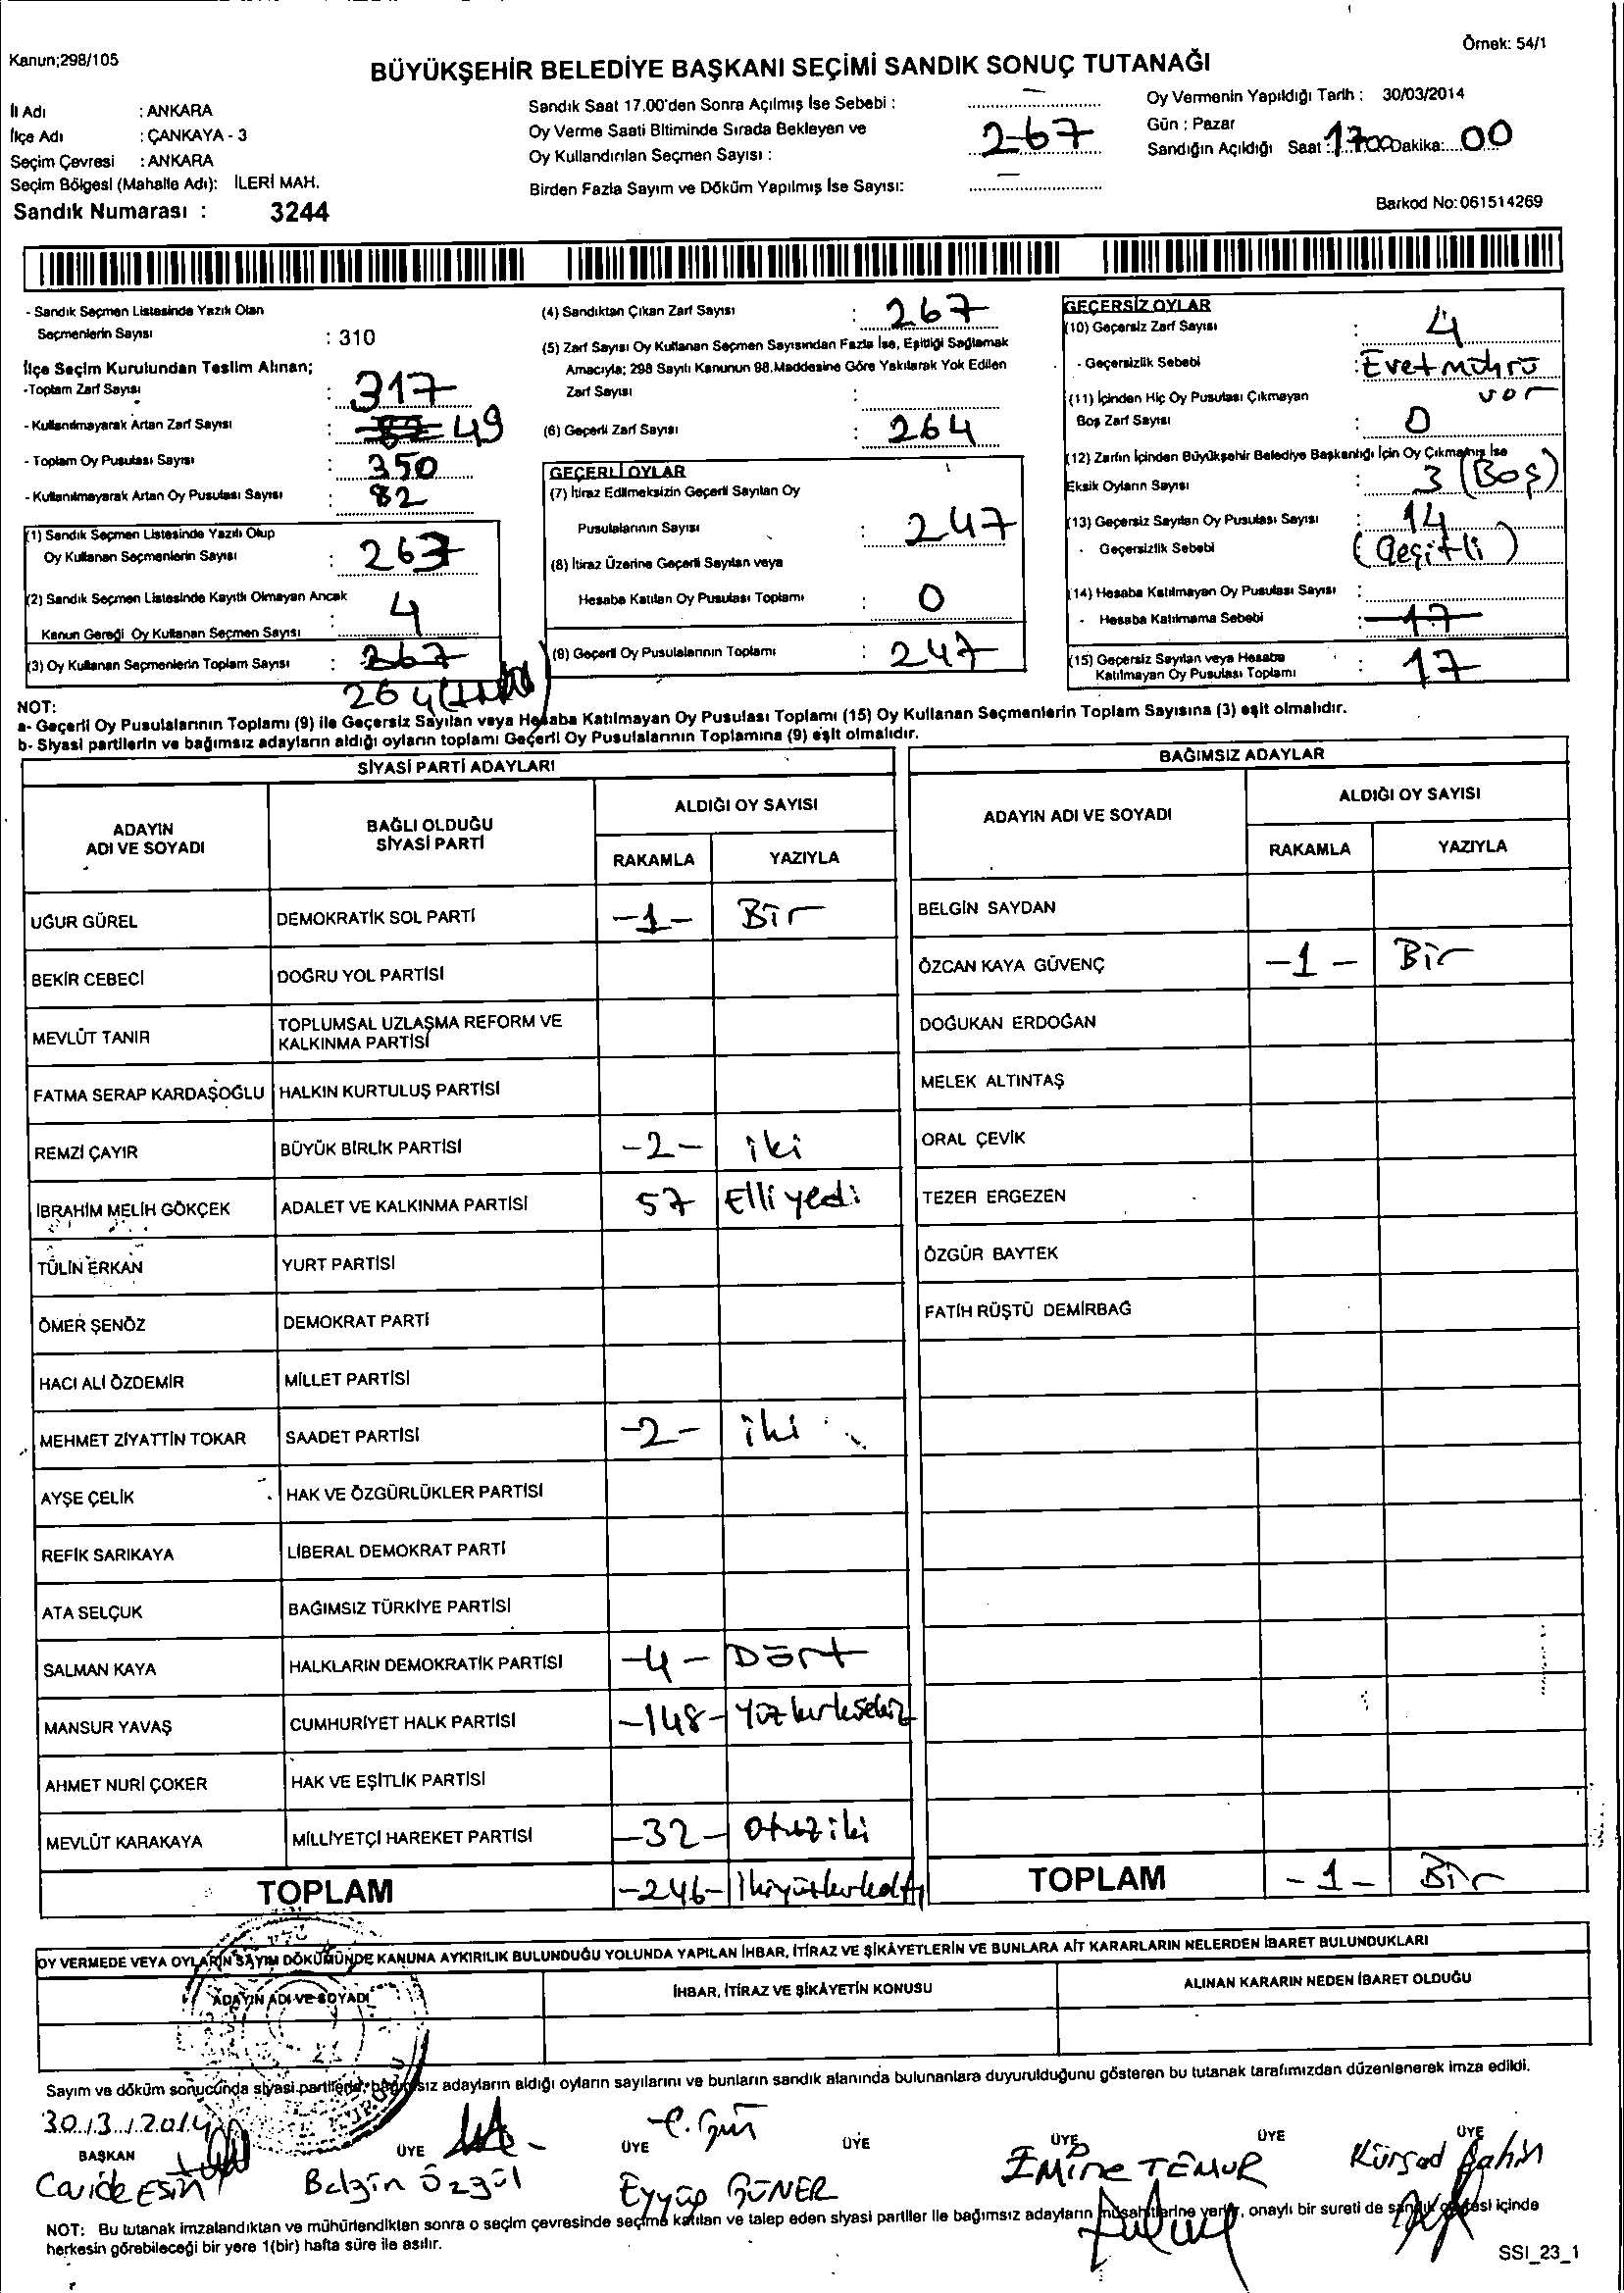 Örnek: 54/1
Kanun;298/105
BÜYÜKŞEHİR BELEDİYE BAŞKANI SEÇİMİ SANDIK SONUÇ TUTANAĞI
İl Adı : ANKARA
İlçe Adı : ÇANKAYA - 3
Seçim Çevresi : ANKARA
Seçim Bölgesi (Mahalle Adı): İLERİ MAH.
Sandık Numarası : 3244
Sandık Saat 17.00'den Sonra Açılmış İse Sebebi : —
Oy Verme Saati Bitiminde Sırada Bekleyen ve
Oy Kullandırılan Seçmen Sayısı : 267
Birden Fazla Sayım ve Döküm Yapılmış İse Sayısı: —
Oy Vermenin Yapıldığı Tarih : 30/03/2014
Gün : Pazar
Sandığın Açıldığı Saat : 1700 Dakika: 00
Barkod No: 061514269
- Sandık Seçmen Listesinde Yazılı Olan
Seçmenlerin Sayısı : 310
İlçe Seçim Kurulundan Teslim Alınan;
-Toplam Zarf Sayısı : 317
- Kullanılmayarak Artan Zarf Sayısı : 49
- Toplam Oy Pusulası Sayısı : 350
- Kullanılmayarak Artan Oy Pusulası Sayısı : 82
(1) Sandık Seçmen Listesinde Yazılı Olup
Oy Kullanan Seçmenlerin Sayısı : 263
(2) Sandık Seçmen Listesinde Kayıtlı Olmayan Ancak
Kanun Gereği Oy Kullanan Seçmen Sayısı : 4
(3) Oy Kullanan Seçmenlerin Toplam Sayısı : 267
264
(4) Sandıktan Çıkan Zarf Sayısı : 267
(5) Zarf Sayısı Oy Kullanan Seçmen Sayısından Fazla İse, Eşitliği Sağlamak
Amacıyla; 298 Sayılı Kanunun 98.Maddesine Göre Yakılarak Yok Edilen
Zarf Sayısı :
(6) Geçerli Zarf Sayısı : 264
GEÇERLİ OYLAR
(7) İtiraz Edilmeksizin Geçerli Sayılan Oy
Pusulalarının Sayısı : 247
(8) İtiraz Üzerine Geçerli Sayılan veya
Hesaba Katılan Oy Pusulası Toplamı : 0
(9) Geçerli Oy Pusulalarının Toplamı : 247
GEÇERSİZ OYLAR
(10) Geçersiz Zarf Sayısı : 4
- Geçersizlik Sebebi : Evet mührü
var
(11) İçinden Hiç Oy Pusulası Çıkmayan
Boş Zarf Sayısı : 0
(12) Zarfın İçinden Büyükşehir Belediye Başkanlığı İçin Oy Çıkmamış İse
Eksik Oyların Sayısı : 3 (Boş)
(13) Geçersiz Sayılan Oy Pusulası Sayısı : 14
- Geçersizlik Sebebi : (Çeşitli)
(14) Hesaba Katılmayan Oy Pusulası Sayısı :
- Hesaba Katılmama Sebebi : 17
(15) Geçersiz Sayılan veya Hesaba
Katılmayan Oy Pusulası Toplamı : 17
NOT:
a- Geçerli Oy Pusulalarının Toplamı (9) ile Geçersiz Sayılan veya Hesaba Katılmayan Oy Pusulası Toplamı (15) Oy Kullanan Seçmenlerin Toplam Sayısına (3) eşit olmalıdır.
b- Siyasi partilerin ve bağımsız adayların aldığı oyların toplamı Geçerli Oy Pusulalarının Toplamına (9) eşit olmalıdır.
SİYASİ PARTİ ADAYLARI
ADAYIN ADI VE SOYADI BAĞLI OLDUĞU SİYASİ PARTİ ALDIĞI OY SAYISI
RAKAMLA YAZIYLA
UĞUR GÜREL DEMOKRATİK SOL PARTİ -1- Bir
BEKİR CEBECİ DOĞRU YOL PARTİSİ
MEVLÜT TANIR TOPLUMSAL UZLAŞMA REFORM VE KALKINMA PARTİSİ
FATMA SERAP KARDAŞOĞLU HALKIN KURTULUŞ PARTİSİ
REMZİ ÇAYIR BÜYÜK BİRLİK PARTİSİ -2- iki
İBRAHİM MELİH GÖKÇEK ADALET VE KALKINMA PARTİSİ 57 Elli yedi
TÜLİN ERKAN YURT PARTİSİ
ÖMER ŞENÖZ DEMOKRAT PARTİ
HACI ALİ ÖZDEMİR MİLLET PARTİSİ
MEHMET ZİYATTİN TOKAR SAADET PARTİSİ -2- iki
AYŞE ÇELİK HAK VE ÖZGÜRLÜKLER PARTİSİ
REFİK SARIKAYA LİBERAL DEMOKRAT PARTİ
ATA SELÇUK BAĞIMSIZ TÜRKİYE PARTİSİ
SALMAN KAYA HALKLARIN DEMOKRATİK PARTİSİ -4- Dört
MANSUR YAVAŞ CUMHURİYET HALK PARTİSİ -148- Yüz kırksekiz
AHMET NURİ ÇOKER HAK VE EŞİTLİK PARTİSİ
MEVLÜT KARAKAYA MİLLİYETÇİ HAREKET PARTİSİ -32- otuz iki
TOPLAM -246- İkiyüzkırkaltı
BAĞIMSIZ ADAYLAR
ADAYIN ADI VE SOYADI ALDIĞI OY SAYISI
RAKAMLA YAZIYLA
BELGİN SAYDAN
ÖZCAN KAYA GÜVENÇ -1- Bir
DOĞUKAN ERDOĞAN
MELEK ALTINTAŞ
ORAL ÇEVİK
TEZER ERGEZEN
ÖZGÜR BAYTEK
FATİH RÜŞTÜ DEMİRBAĞ
TOPLAM -1- Bir
OY VERMEDE VEYA OYLARIN SAYIM DÖKÜMÜNDE KANUNA AYKIRILIK BULUNDUĞU YOLUNDA YAPILAN İHBAR, İTİRAZ VE ŞİKÂYETLERİN VE BUNLARA AİT KARARLARIN NELERDEN İBARET BULUNDUKLARI
ADAYIN ADI VE SOYADI İHBAR, İTİRAZ VE ŞİKÂYETİN KONUSU ALINAN KARARIN NEDEN İBARET OLDUĞU
Sayım ve döküm sonucunda siyasi partilerle, bağımsız adayların aldığı oyların sayılarını ve bunların sandık alanında bulunanlara duyurulduğunu gösteren bu tutanak tarafımızdan düzenlenerek imza edildi.
30/3/2014
BAŞKAN ÜYE ÜYE ÜYE ÜYE ÜYE ÜYE
E. Gün
Cavide Esin Belgin Özgül Eyyüp GÜNER Emine TEMUR Kürşad Şahin
NOT: Bu tutanak imzalandıktan ve mühürlendikten sonra o seçim çevresinde seçime katılan ve talep eden siyasi partiler ile bağımsız adayların müşahitlerine verilir, onaylı bir sureti de sandık çevresi içinde
herkesin görebileceği bir yere 1(bir) hafta süre ile asılır.
SSI_23_1